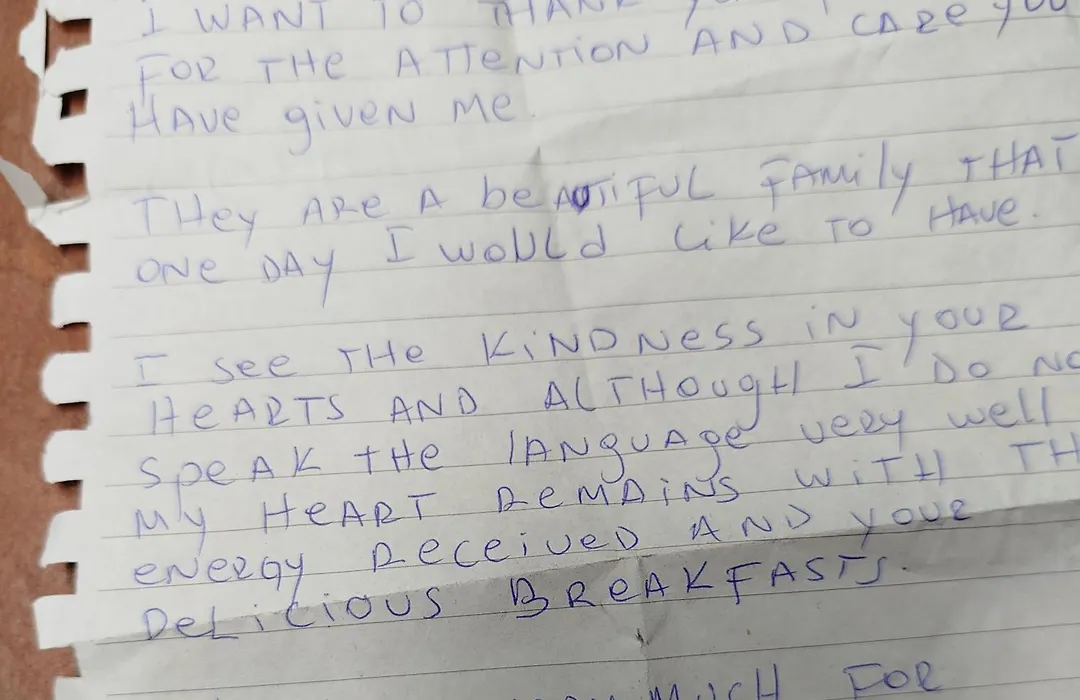 I WANT TO THANK YO
FOR THE ATTENTION AND CARE YOU
HAVE given Me.
THey ARe A beAUTiFUL FAMily THAT
ONe DAY I WOULd Like TO HAVE.
I see THe KiNDNess iN yOUR
HeARTS AND ALTHOugH I DO NO
SpeAK tHe lANgUAge very well
My HeART ReMAiNS WiTH TH
eNeRgy ReceiveD AND yOUR
DeLiciOUS BReAKFASTS.
MUCH FOR